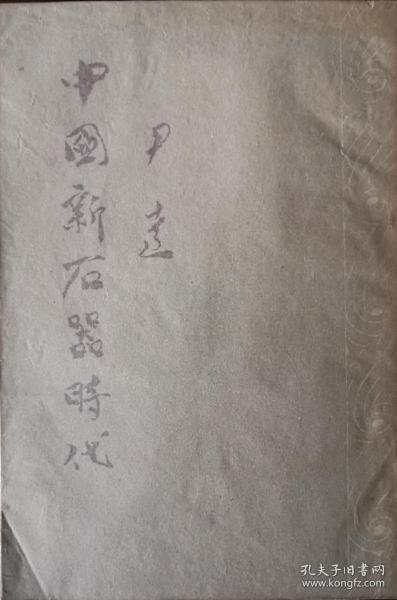 尹達
中國新石器時代
孔夫子旧书网
www.kongfz.com